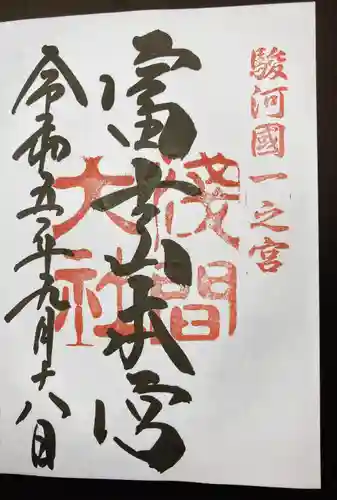 駿河國一之宮
富士山本宮
淺間大社
令和五年九月十八日